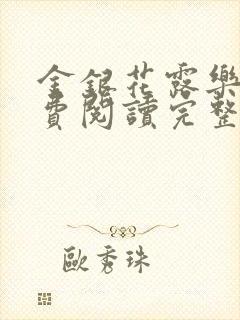 金銀花露樂
費閱讀完整
歐秀珠